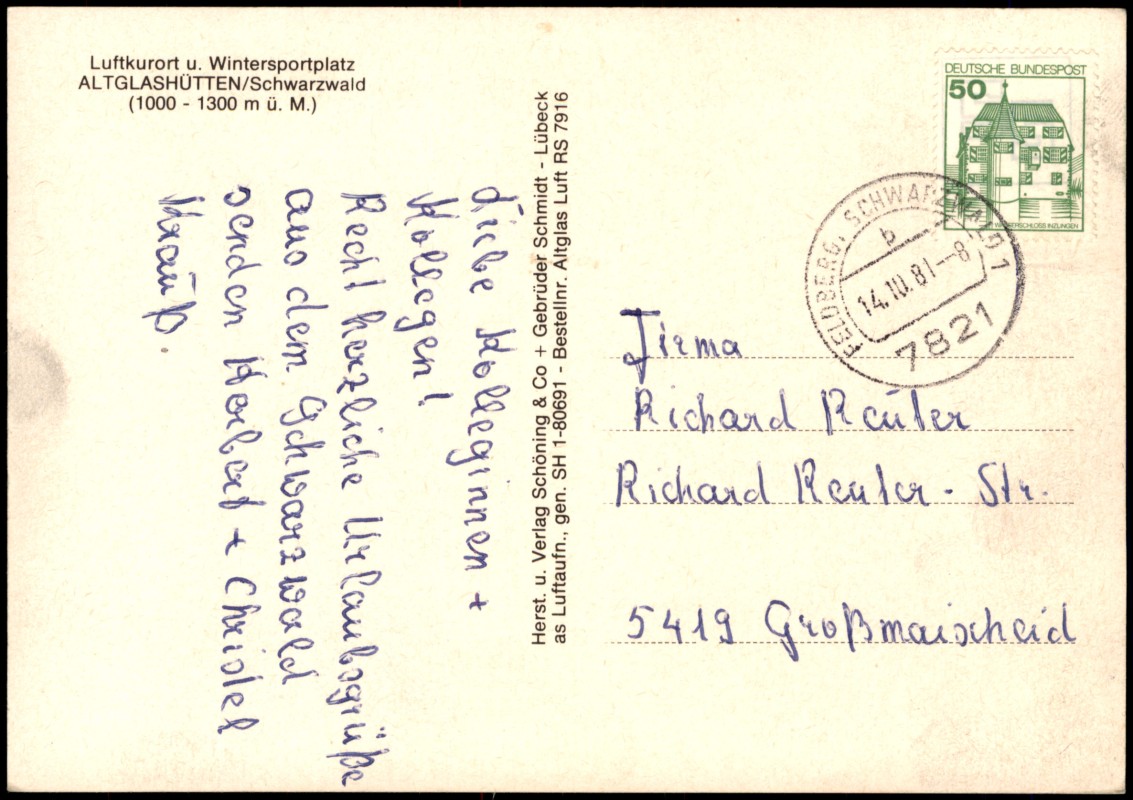 Luftkurort u. Wintersportplatz
ALTGLASHÜTTEN/Schwarzwald
(1000 - 1300 m ü. M.)
Liebe Kolleginnen +
Kollegen!
Recht herzliche Urlaubsgrüße
aus dem Schwarzwald
senden Herbert + Christel
Krauß.
Herst. u. Verlag Schöning & Co + Gebrüder Schmidt - Lübeck
as Luftaufn., gen. SH 1-80691 - Bestellnr. Altglas Luft RS 7916
DEUTSCHE BUNDESPOST
50
WASSERSCHLOSS INZLINGEN
FELDBERG, SCHWARZWALD 1
b
14.10.81-8
7821
Firma
Richard Reuter
Richard Reuter - Str.
5419 Großmaischeid